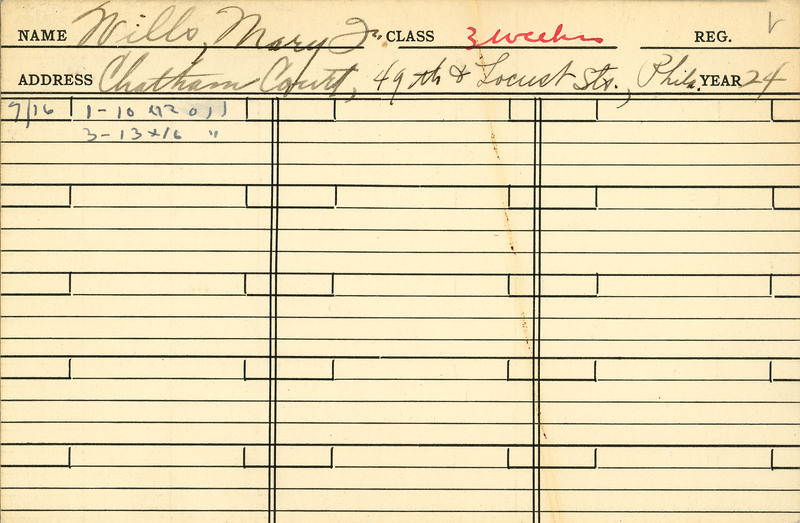 NAME Wills, Mary J. CLASS 3 weeks REG. √
ADDRESS Chatham Court, 49th & Locust Sts., Phila. YEAR 24
9/16 1-10 x 12 oil
3-13 x 16 "